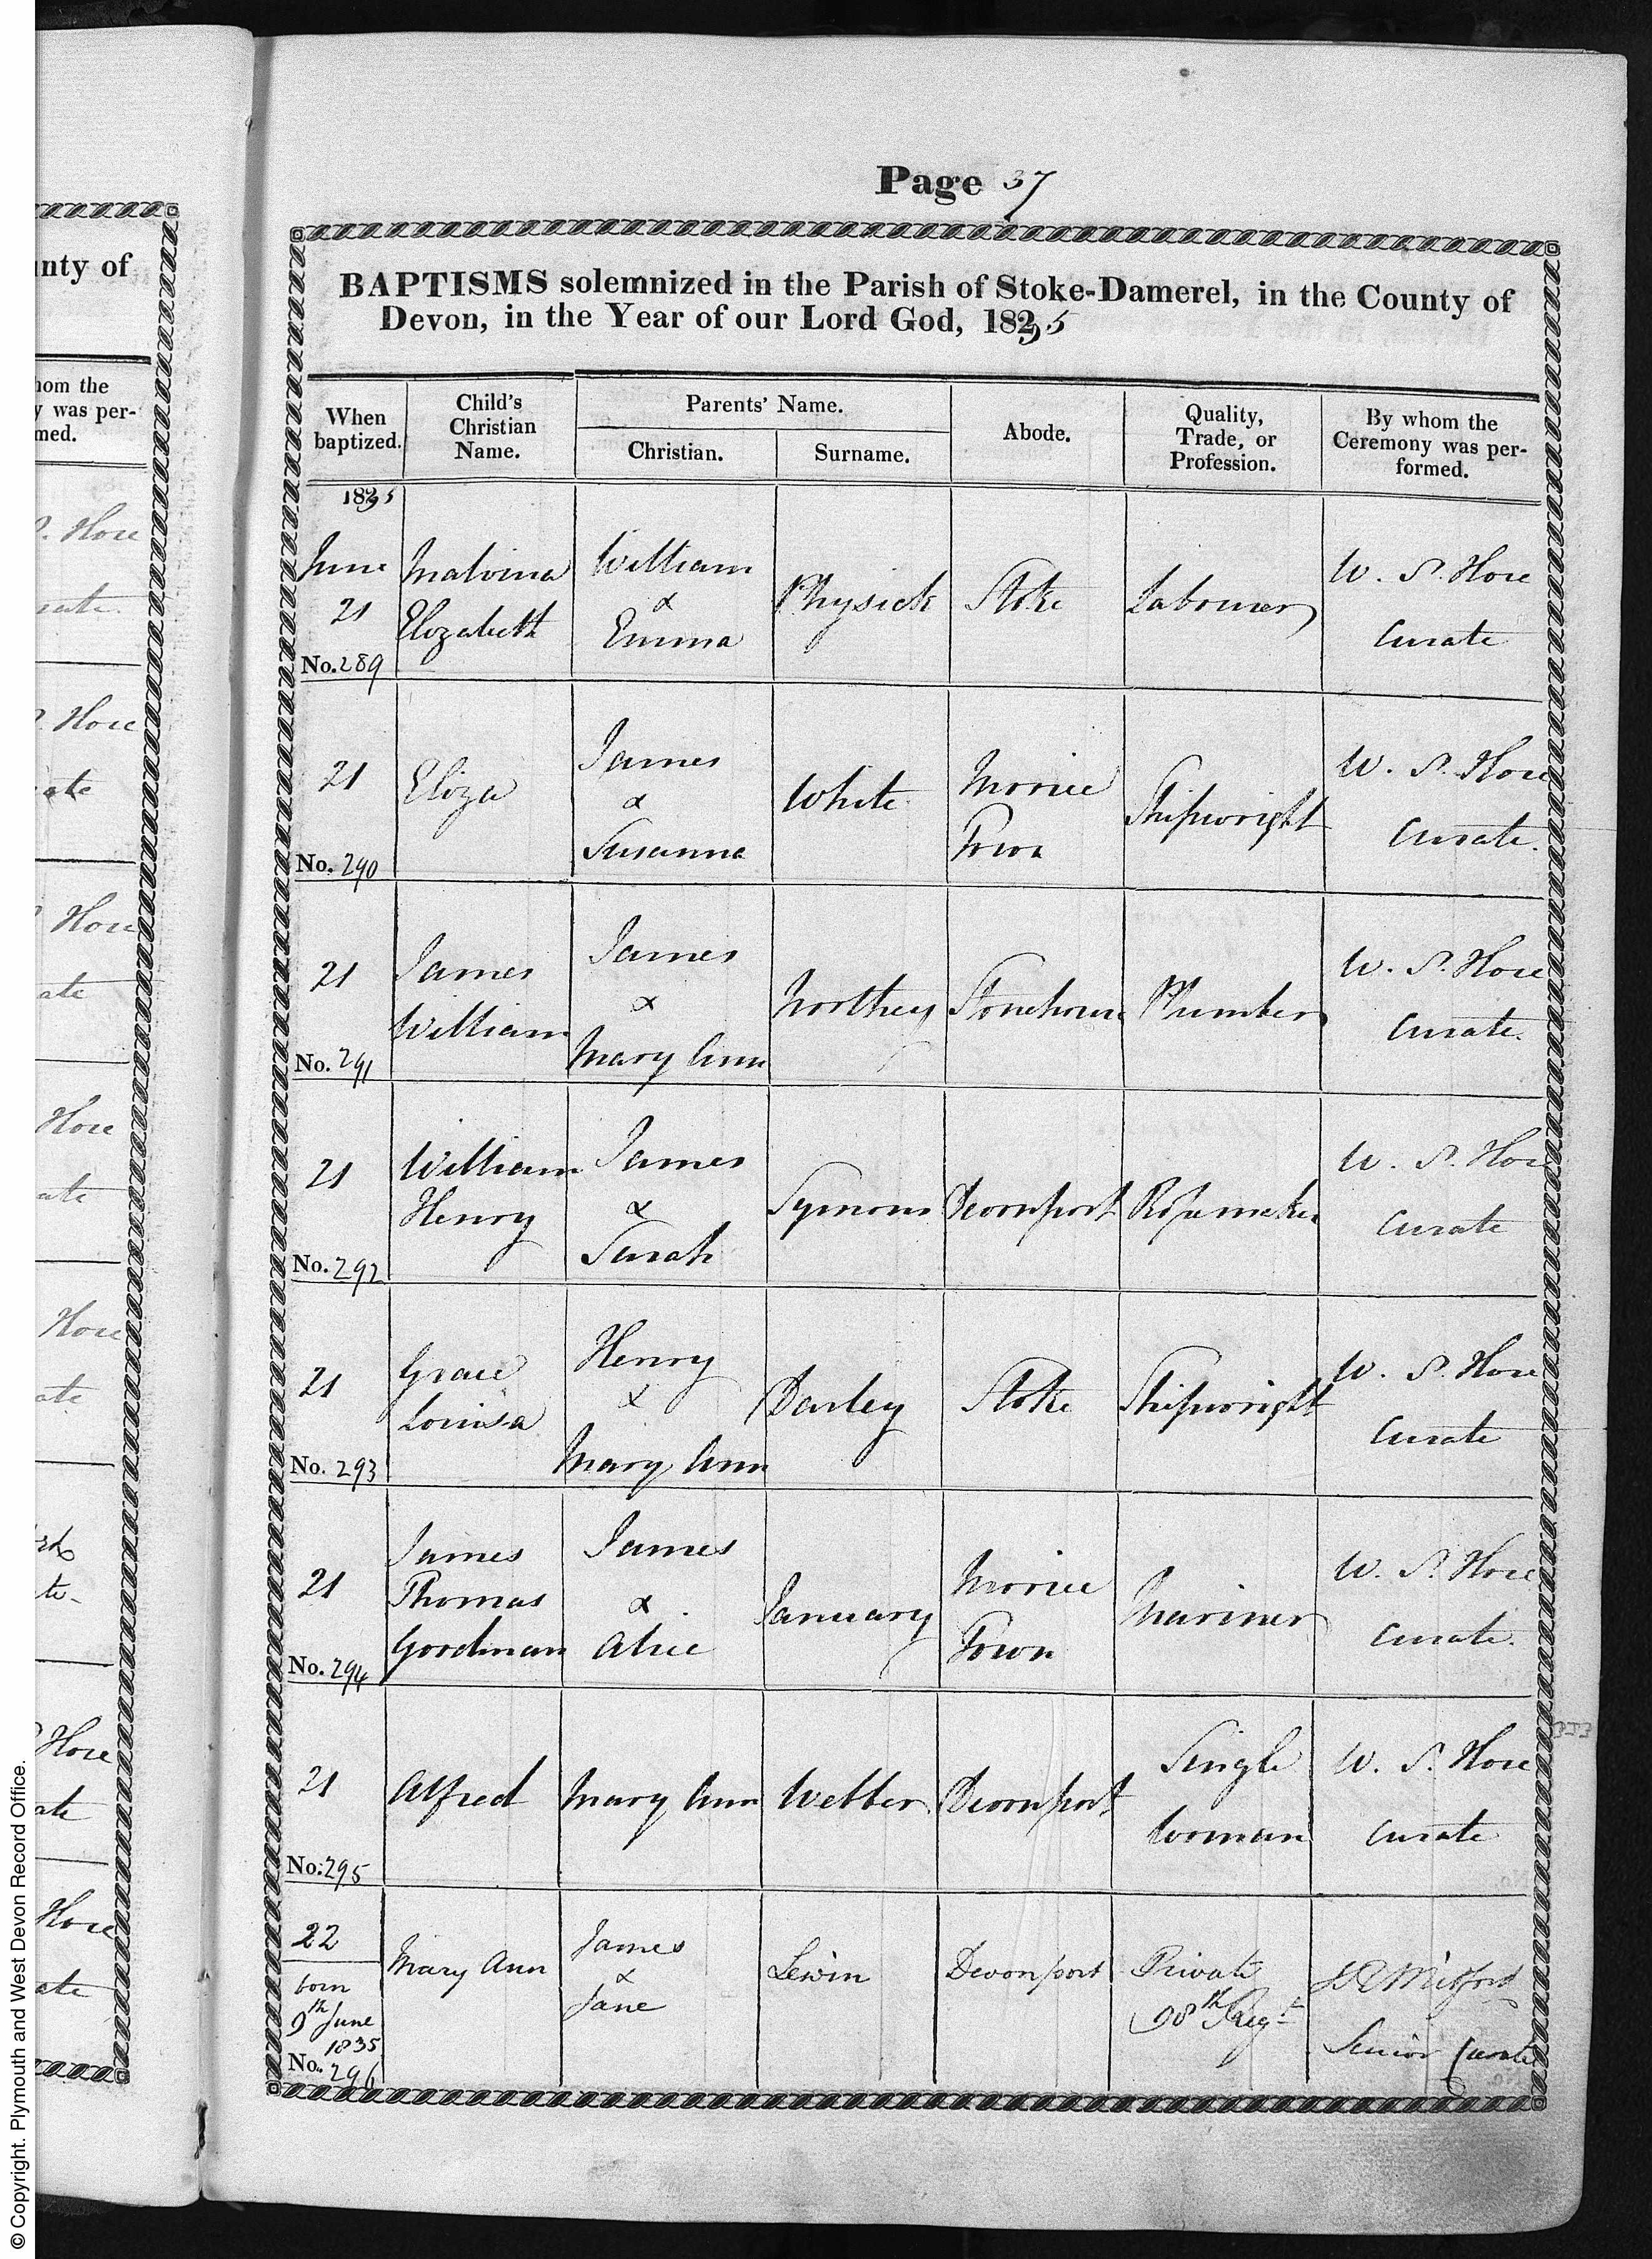 Page 37
BAPTISMS solemnized in the Parish of Stoke-Damerel, in the County of
Devon, in the Year of our Lord God, 1835
When baptized.
Child's Christian Name.
Parents' Name.
Christian.
Surname.
Abode.
Quality, Trade, or Profession.
By whom the Ceremony was per-
formed.
1835
June 21
No. 289
Malvina
Elizabeth
William
&
Emma
Physick
Stoke
Labourer
W. S. Hore
Curate
21
No. 290
Eliza
James
&
Susanna
White
Morice
Town
Shipwright
W. S. Hore
Curate.
21
No. 291
James
William
James
&
Mary Ann
Northey
Stonehouse
Plumber
W. S. Hore
Curate.
21
No. 292
William
Henry
James
&
Sarah
Symons
Devonport
Ropemaker
W. S. Hore
Curate
21
No. 293
Grace
Louisa
Henry
&
Mary Ann
Darley
Stoke
Shipwright
W. S. Hore
Curate
21
No. 294
James
Thomas
Goodman
James
&
Alice
January
Morice
Town
Mariner
W. S. Hore
Curate.
21
No. 295
Alfred
Mary Ann
Webber
Devonport
Single
Woman
W. S. Hore
Curate
22
born
9th June
1835
No. 296
Mary Ann
James
&
Jane
Lewin
Devonport
Private
98th Regt
Mitford
Senior Curate
inty of
hom the
y was per-
med.
Hore
Hore
ate
Hore
ate
Hore
ate
Hore
ate
te-
Hore
ate
Hore
ate
© Copyright. Plymouth and West Devon Record Office.